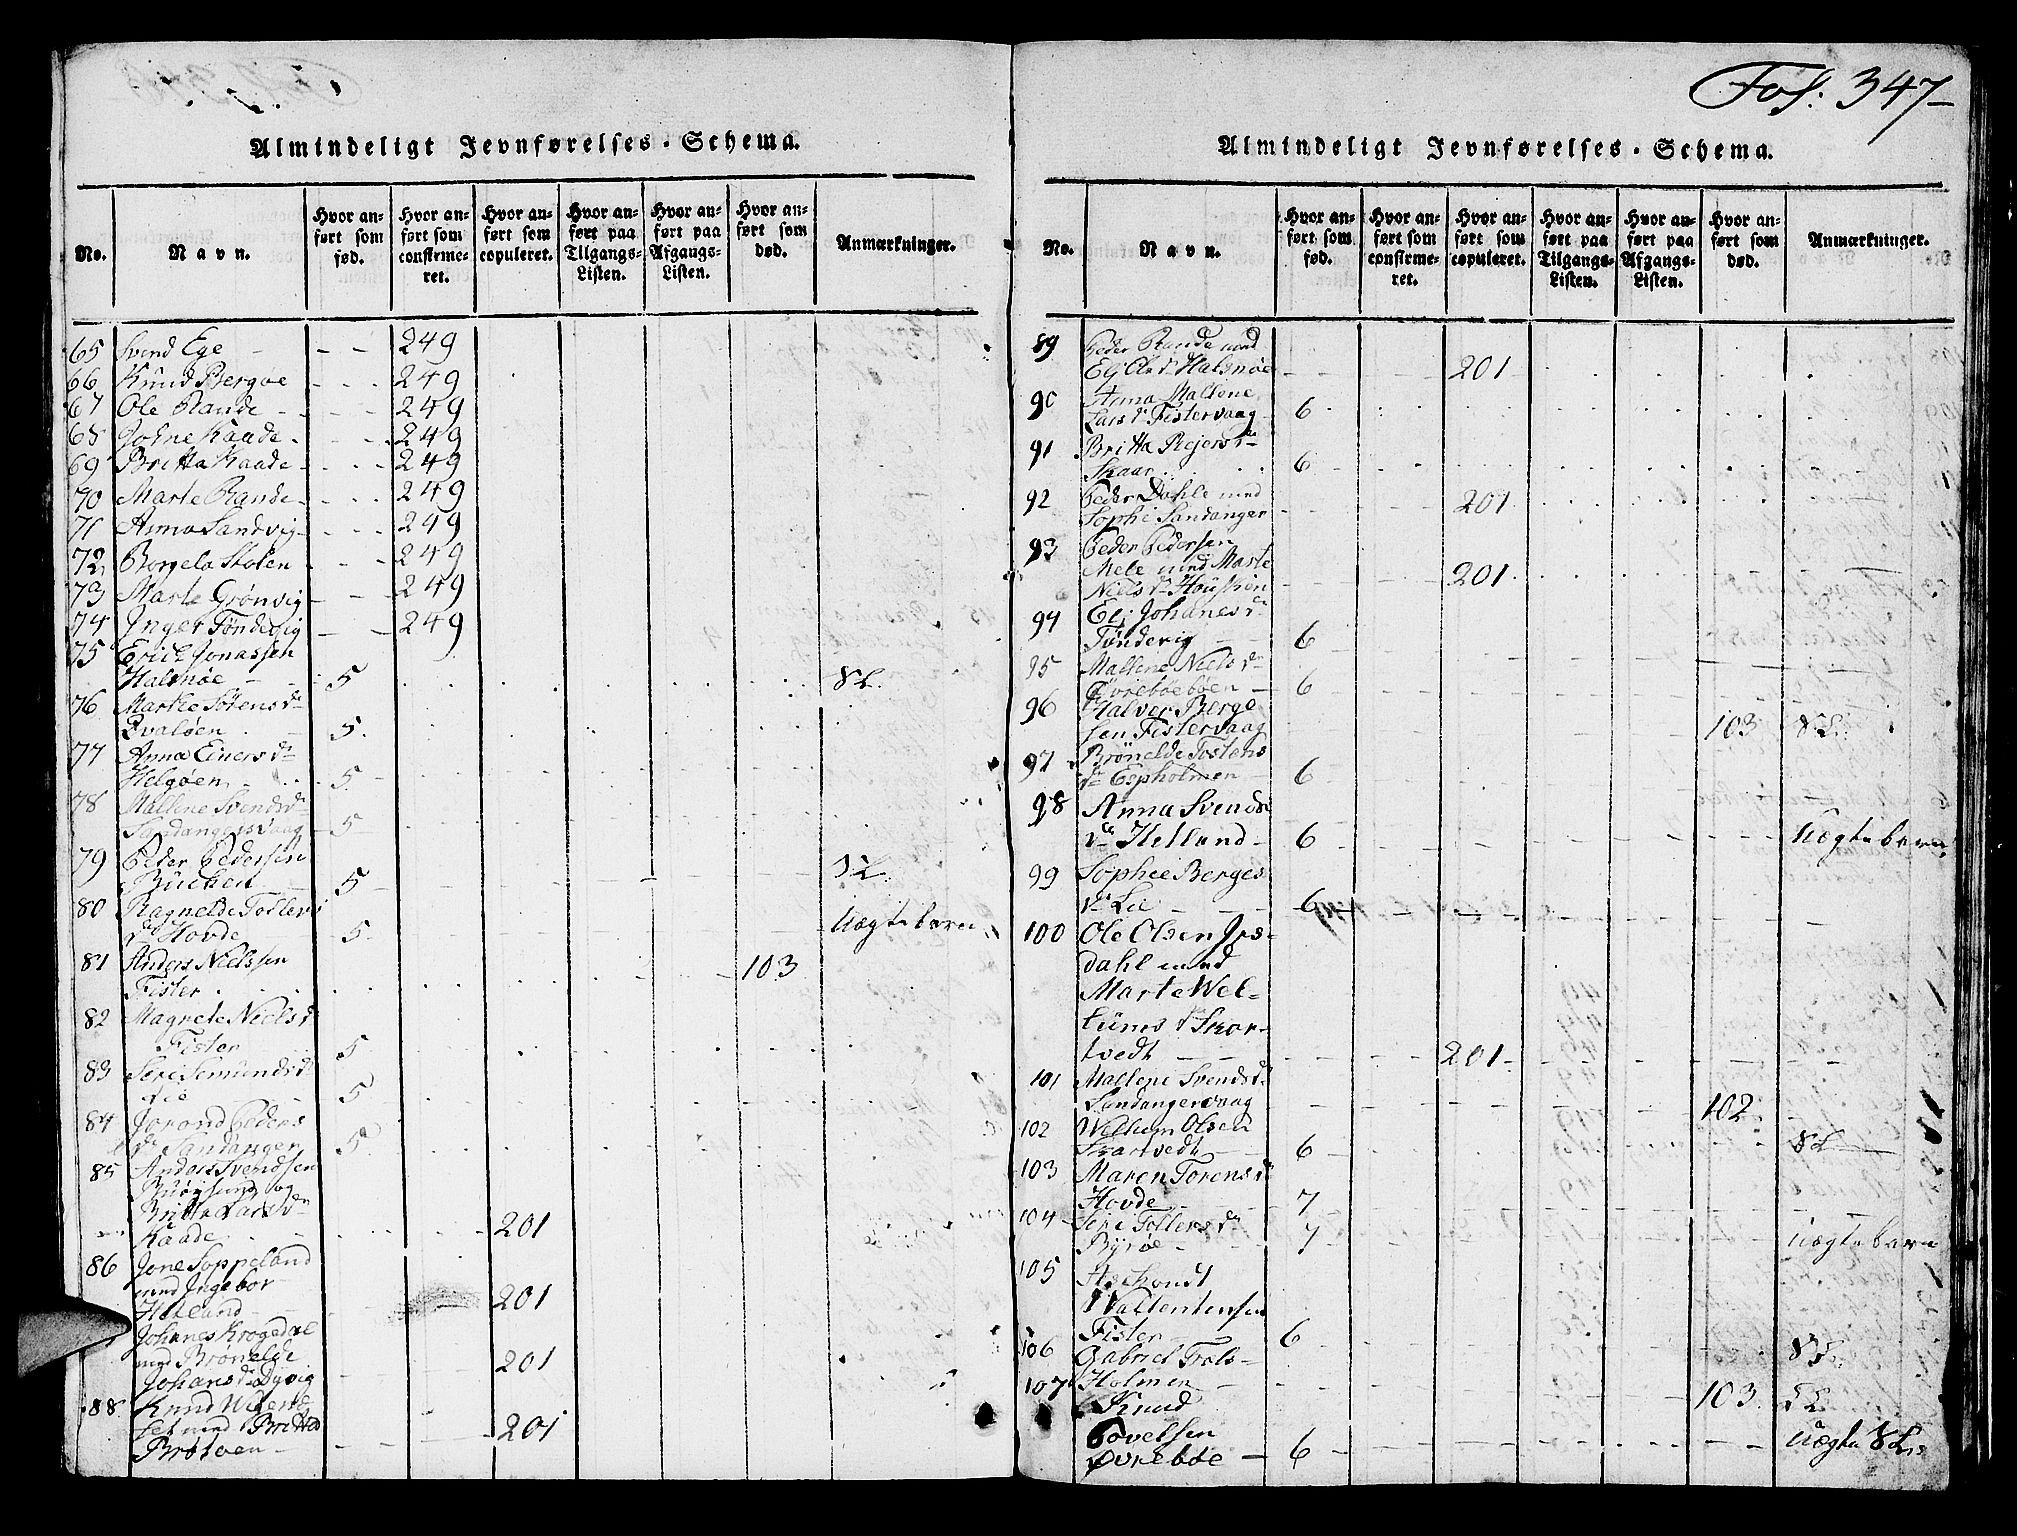 Fol: 347
Almindeligt Jevnførelses-Schema.
No.
Navn.
Hvor anført som fød.
Hvor anført som confirmeret.
Hvor anført som copuleret.
Hvor anført paa Tilgangs-Listen.
Hvor anført paa Afgangs-Listen.
Hvor anført som død.
Anmærkninger.
65 Svend Ege 249
66 Knud Bergøe 249
67 Ole Rande 249
68 Johne Kaade 249
69 Britta Kaade 249
70 Marte Rande 249
71 Anna Sandvig 249
72 Borgela Stolen 249
73 Marte Grönvig 249
74 Inger Töndevig 249
75 Erich Jonassen
Halsnøe 5
76 Sörens dr
5
77 Anna Einers dr
Helgøen 5
78 Mallene Svends dr
Sandangersvaag 5
79 Peder Pedersen
5
80 Ragnelde Tostens
dr Hovde 5 Uægte barn
81 Anders Nielssen
Fister 103
82 Magnete Niels dr
Fister 5
83 Seri Semunds dr
5
84 Jorond Peders
dr Sandanger 5
85 Anders Svendsen
og
Britta Lars dr
Kaade 201
86 Jone Soppeland
med Ingebor
Hetland 201
Johanes Krogedal
med Brönelde
Johans dr Dyvig 201
88 Knud
med Britta
201
Almindeligt Jevnførelses-Schema.
No.
Navn.
Hvor anført som fød.
Hvor anført som confirmeret.
Hvor anført som copuleret.
Hvor anført paa Tilgangs-Listen.
Hvor anført paa Afgangs-Listen.
Hvor anført som død.
Anmærkninger.
89 Peder Rande med
Halsnøe 201
90 Anna Mallene
Lars dr Fistervaag 6
91 Britta Rejers dr
Skaar 6
92 Peder Dahle med
Sophi Sandanger 201
93 Peder Pedersen
Mele med Marte
Niels dr 201
94 Eli Johanes dr
Tönderig 6
95 Mallene Niels dr
6
96 Halver Berge
sen Fistervaag 103
97 Brönelde Tostens
dr Espholmen 6
98 Anna Svends
dr Helland 6 Uægte barn
99 Sophie Berges
dr Lie 6
100 Ole Olsen Jøs
dahl med
Marte Wel-
lums dr Skar-
tvedt 201
101 Mallene Svends dr
Sandangervaag 102
102 Wellum Olsen
Skartvedt 6
103 Maren Torens dr
Hovde 7
104 Seri Tollers dr
Byrøe 7 Uægte barn
105 Askondt
Vallentensen
Fister 6
106 Gabriel Trols-
107 Holmen 103
Knud
Povelsen
Øvrebøe 6 Uægte